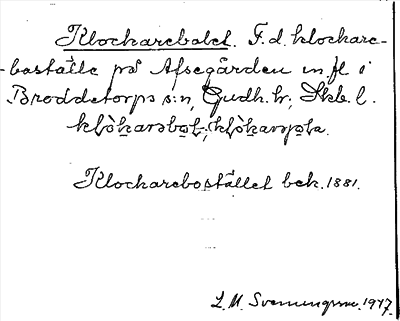 Klockarebolet. F.d. klockare-
-boställe på Afsegården m.fl i
Broddetorps s:n, Gudh. hr, Skb. l.
Klockarebostället bek. 1881.
L. M. Svenungsson. 1917.